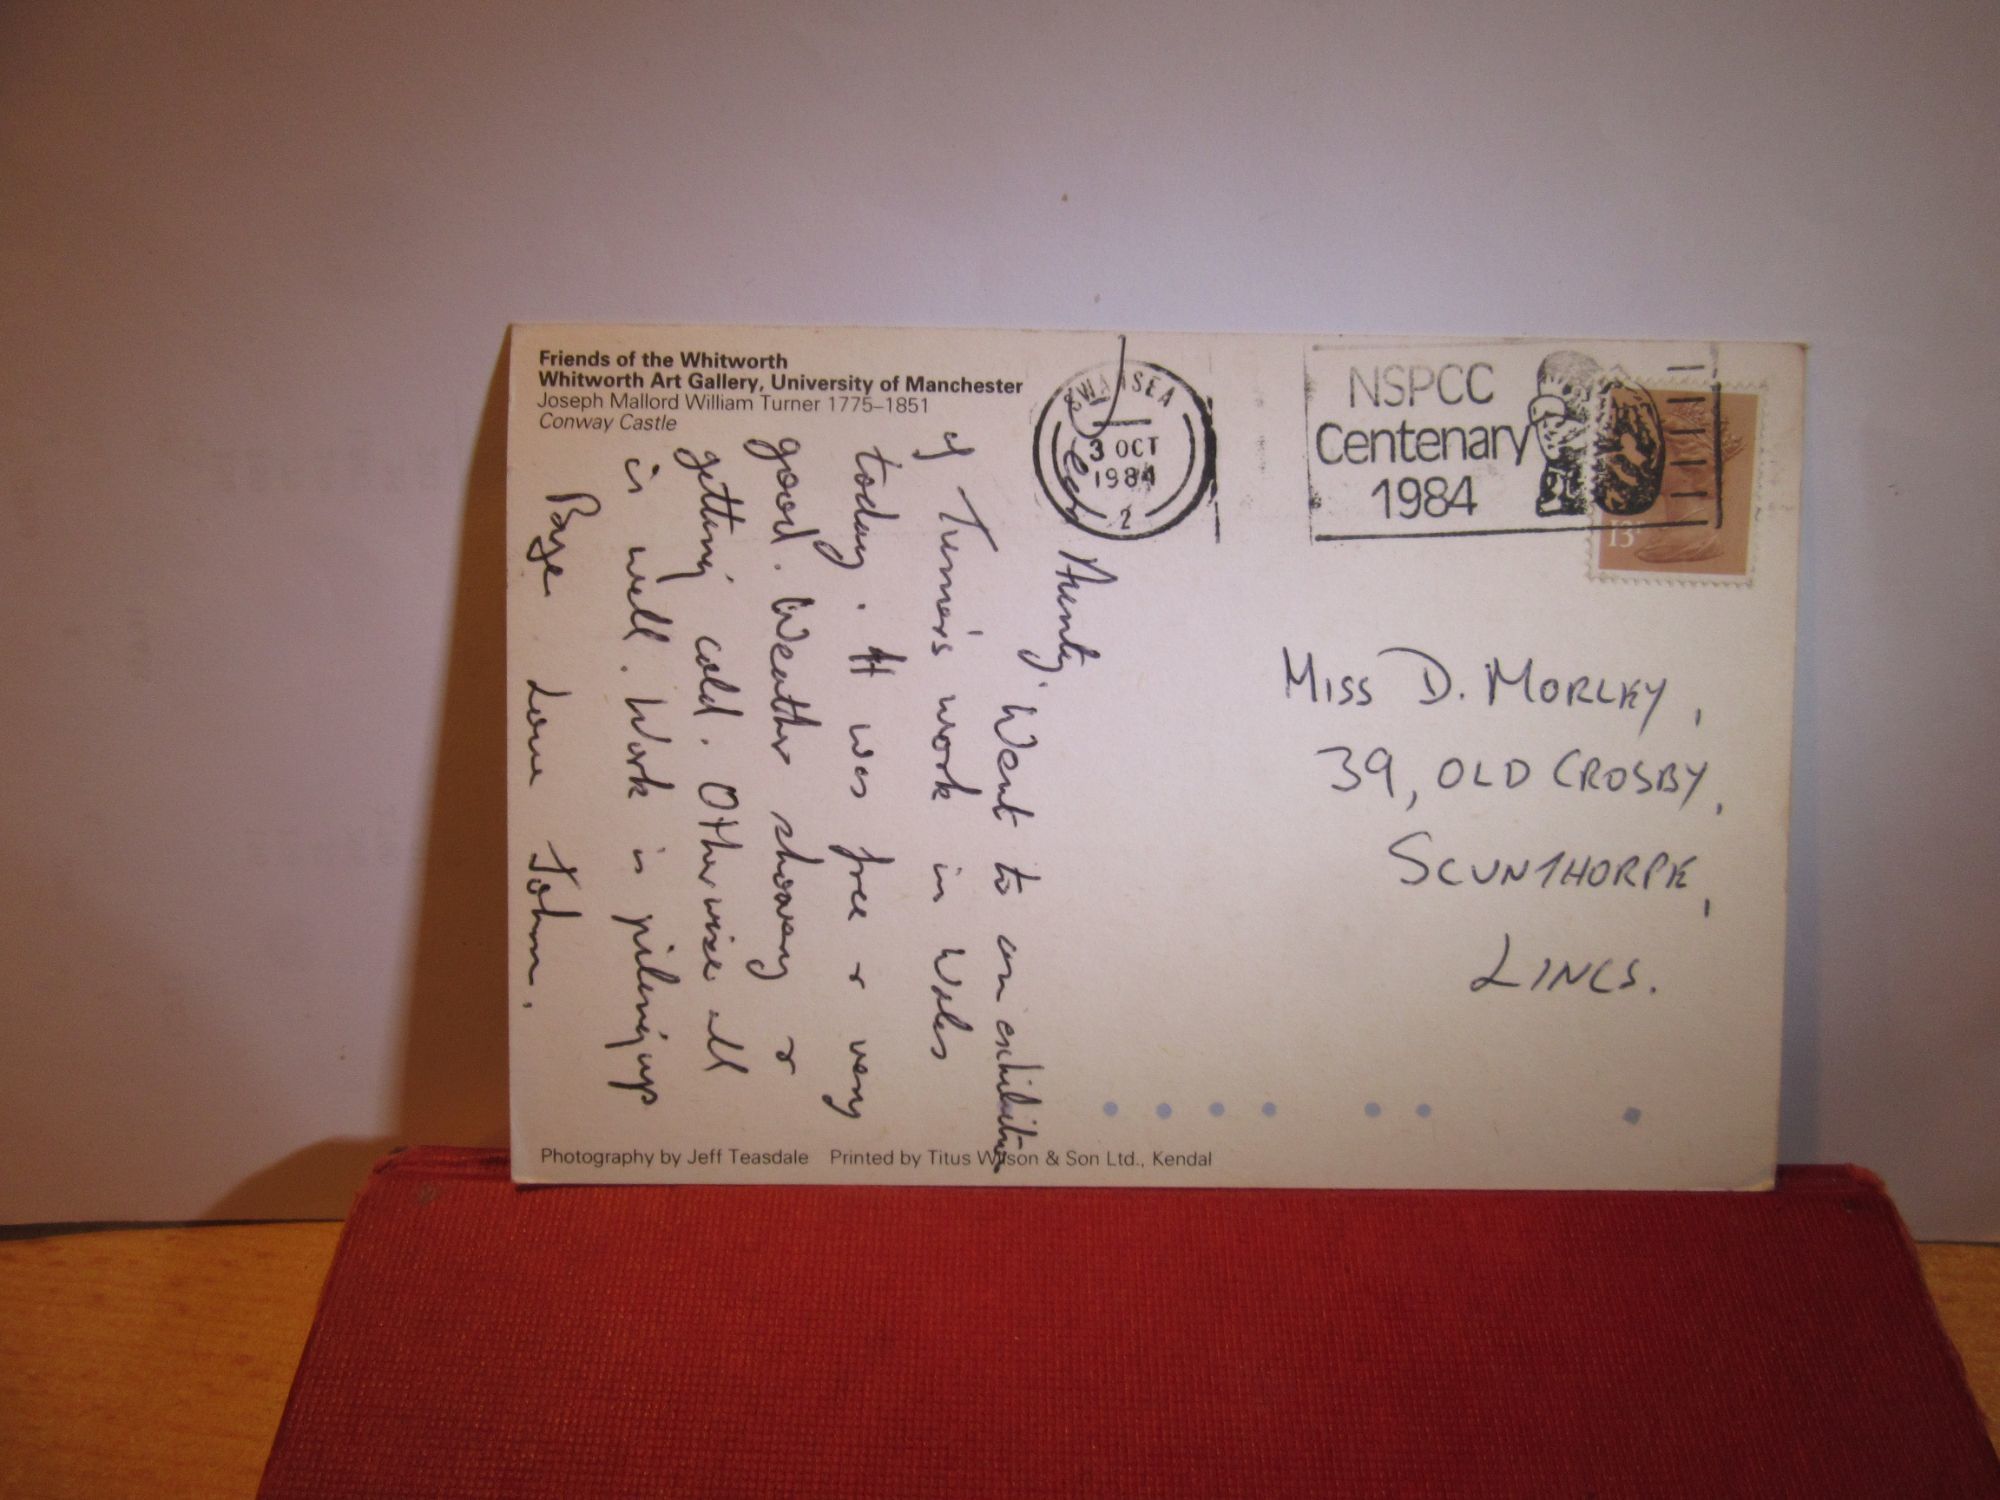 Friends of the Whitworth
Whitworth Art Gallery, University of Manchester
Joseph Mallord William Turner 1775–1851
Conway Castle
SWANSEA
3 OCT
1984
2
NSPCC
Centenary
1984
13
Dear Aunty, Went to an exhibition
of Turner's work in Wales
today. It was free & very
good. Weather showery &
getting cold. Otherwise all
is well. Work is piling up
Bye Love John.
MISS D. MORLEY,
39, OLD CROSBY,
SCUNTHORPE,
LINCS.
Photography by Jeff Teasdale Printed by Titus Wilson & Son Ltd., Kendal